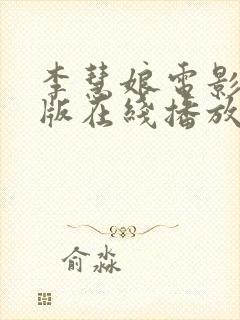 李慧娘电影
版在线播放
俞淼